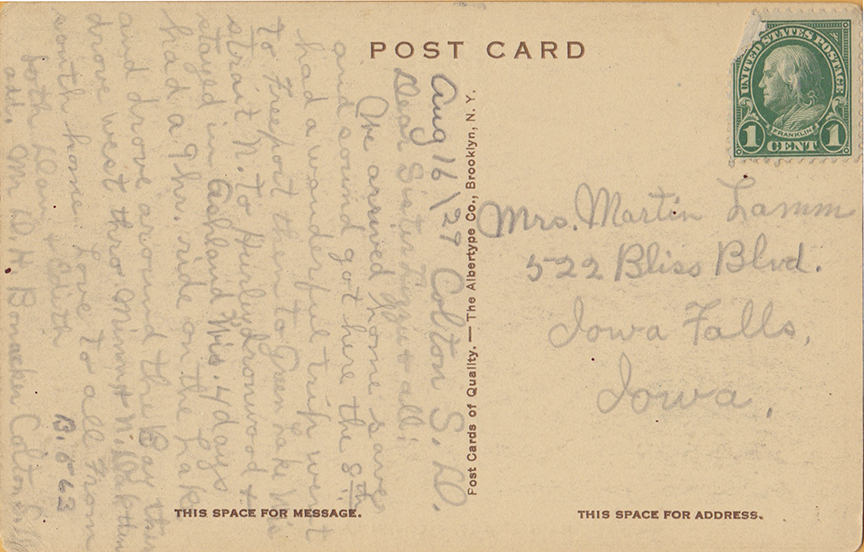 POST CARD
UNITED STATES POSTAGE
FRANKLIN
1 CENT 1
Aug 16/27 Colton S. D.
Dear Sister Lizzie & all:
We arrived home save
and sound got here the 8th.
had a wanderful trip went
to Freeport then to Green Lake Wis
strait N. to Hurley Ironwood &
stayed in Ashland Wis. 4 days
had a 9 hr. ride on the Lake
and drove around the Bay then
drove west thro Minn & N. Dak then
south home. Love to all from
both Dan & Edith
add. Mr D. H. Bonacker Colton S. D.
B. 563
Post Cards of Quality. — The Albertype Co., Brooklyn, N. Y.
Mrs. Martin Lamm
522 Bliss Blvd.
Iowa Falls,
Iowa.
THIS SPACE FOR MESSAGE.
THIS SPACE FOR ADDRESS.